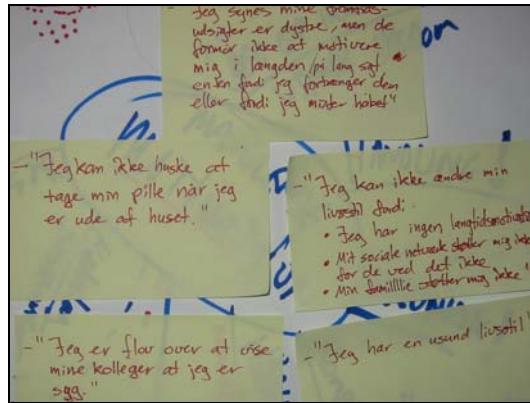 Jeg synes mine fremtids-
udsigter er dystre, men de
formår ikke at motivere
mig i længden/på lang sigt
enten fordi jeg fortrænger dem
eller fordi jeg mister håbet"
om
-"Jeg kan ikke huske at
tage min pille når jeg
er ude af huset."
-"Jeg kan ikke ændre min
livsstil fordi:
• Jeg har ingen langtidsmotivation
• Mit sociale netværk støtter mig ikke
for de ved det ikke
• Min famillie støtter mig ikke"
-"Jeg er flov over at vise
mine kolleger at jeg er
syg."
-"Jeg har en usund livsstil"